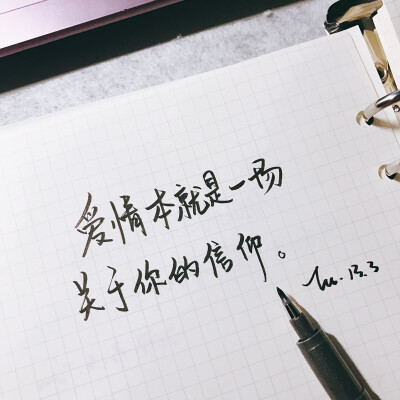 爱情本就是一场
关于你的信仰。